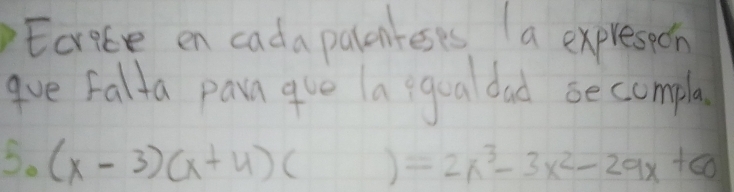 Ecribe en cada parenteses la expresión
que falta para que la igualdad se cumpla.
5. (x - 3)(x + 4)( ) = 2x³ - 3x² - 29x + 60